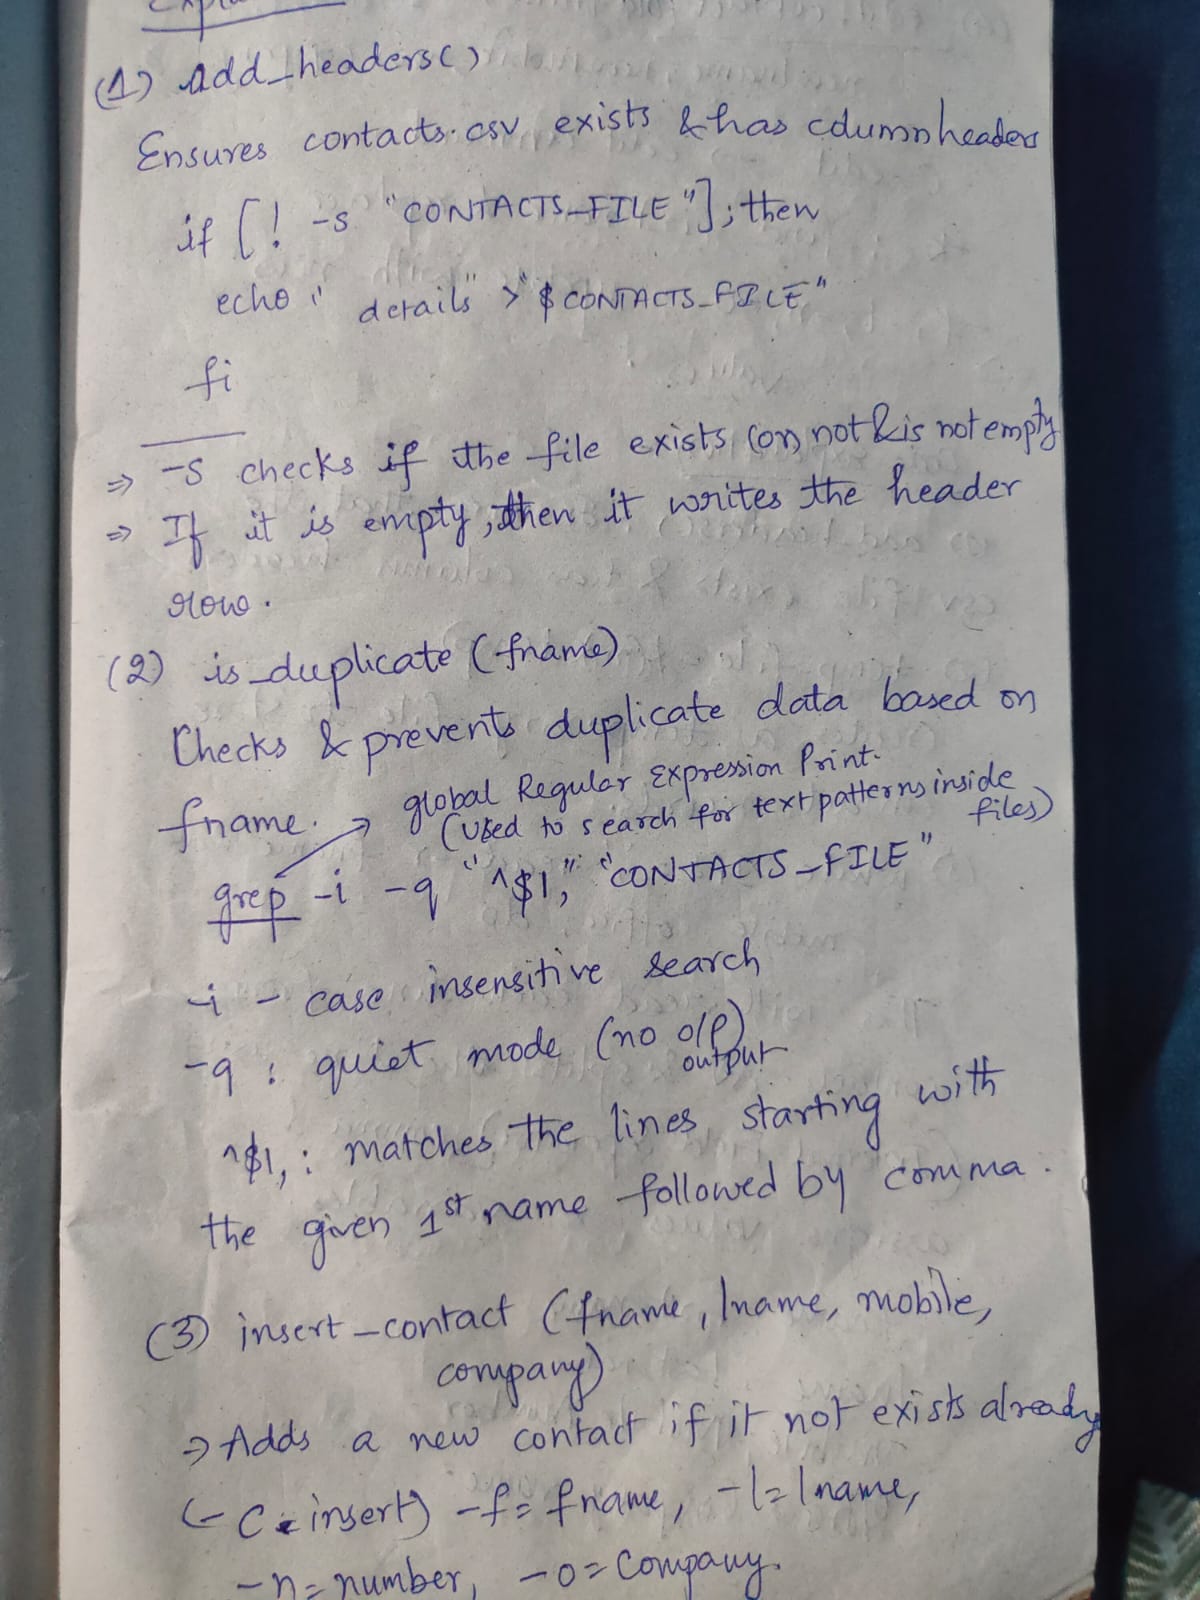 (1) Add_headers()
Ensures contacts.csv exists & has column headers
if [! -s "CONTACTS_FILE"]; then
echo " details" > "$CONTACTS_FILE"
fi
⇒ -s checks if the file exists (or) not & is not empty
⇒ If it is empty, then it writes the header
row.
(2) is_duplicate (fname)
Checks & prevents duplicate data based on
fname.
→ global Regular Expression Print.
(Used to search for text patterns inside
files)
grep -i -q "^$1," "CONTACTS_FILE"
-i - case insensitive search
-q : quiet mode (no o/p)
output
^$1, : matches the lines starting with
the given 1st name followed by comma.
(3) insert_contact (fname, lname, mobile,
company)
→ Adds a new contact if it not exists already
(-C = insert) -f = fname, -l = lname,
-n = number, -o = Company.